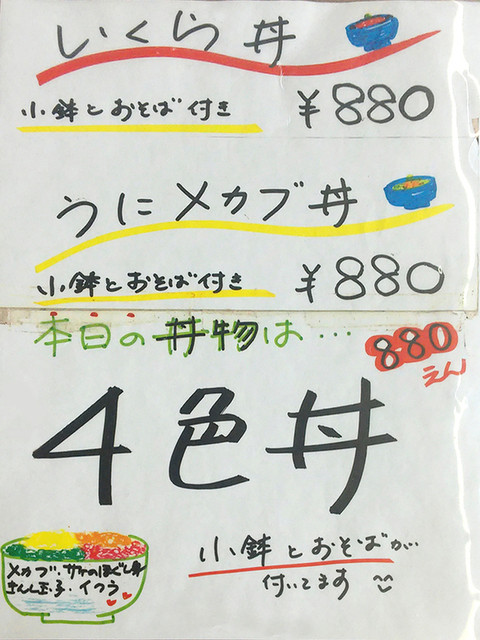 いくら丼
小鉢とおそば付き ¥880
うにメカブ丼
小鉢とおそば付き ¥880
本日の丼物は…
880
えん
4色丼
小鉢とおそばが
付いてます
メカブ、サケのほぐし身
きんし玉子・イクラ